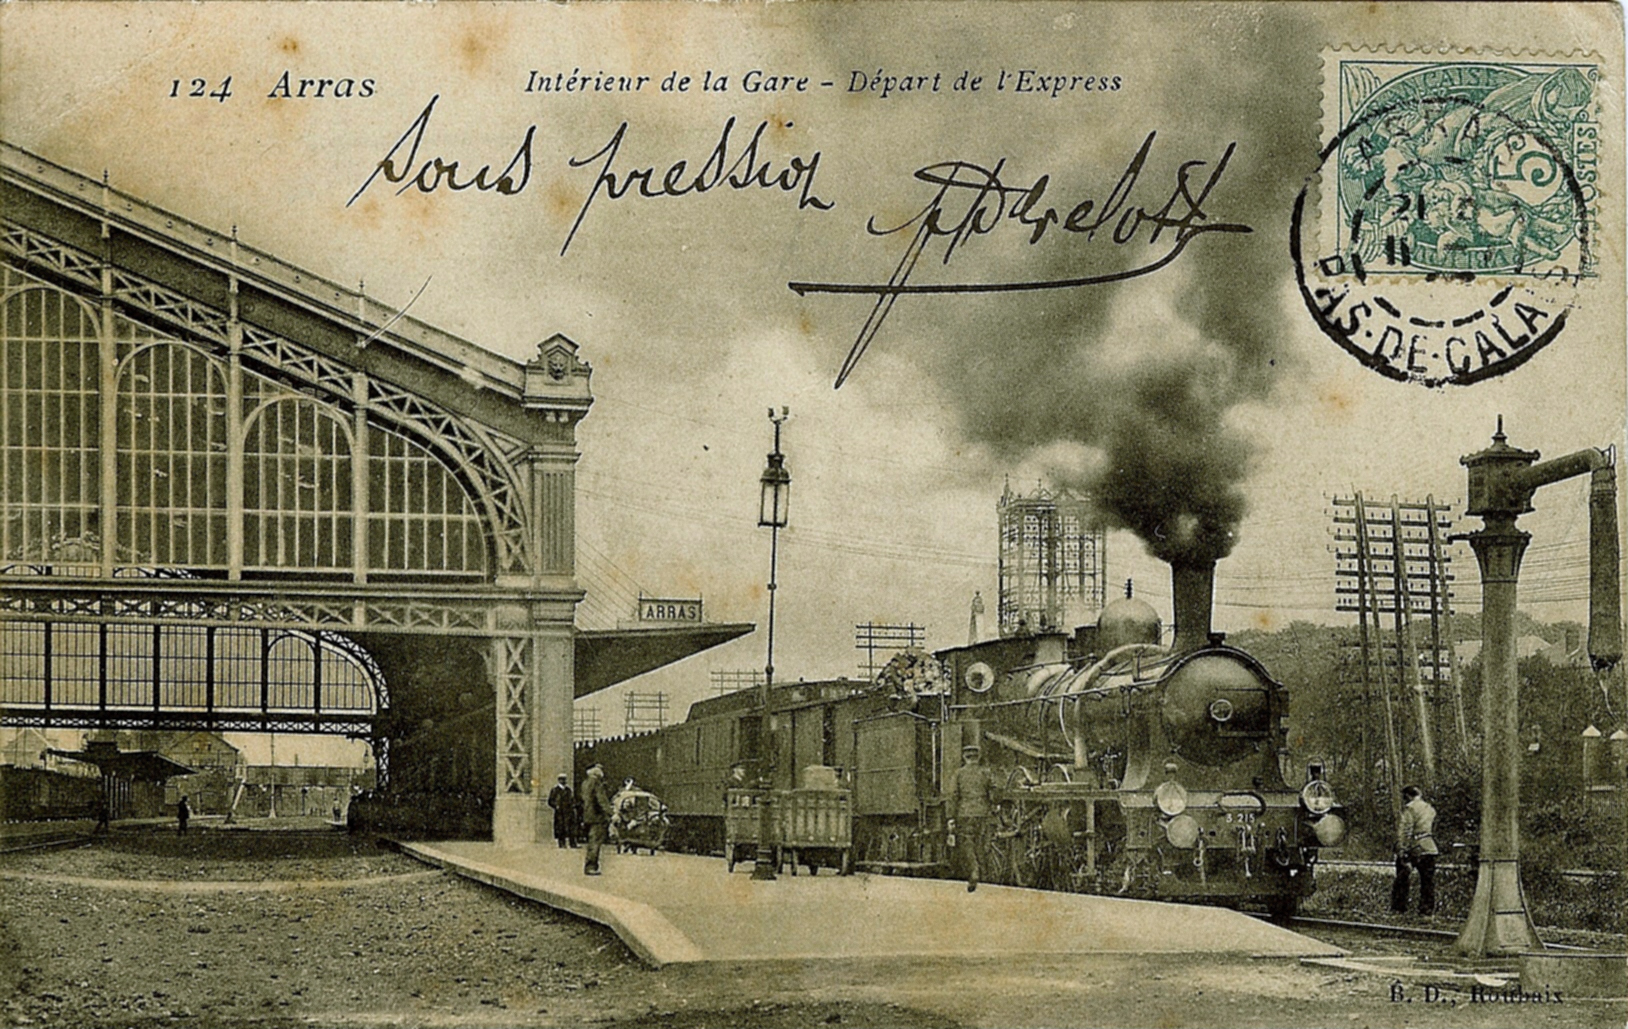 124 Arras Intérieur de la Gare - Départ de l'Express
sous pression
5
POSTES
ARRAS
21
11
PAS-DE-CALAIS
ARRAS
B. D., Roubaix